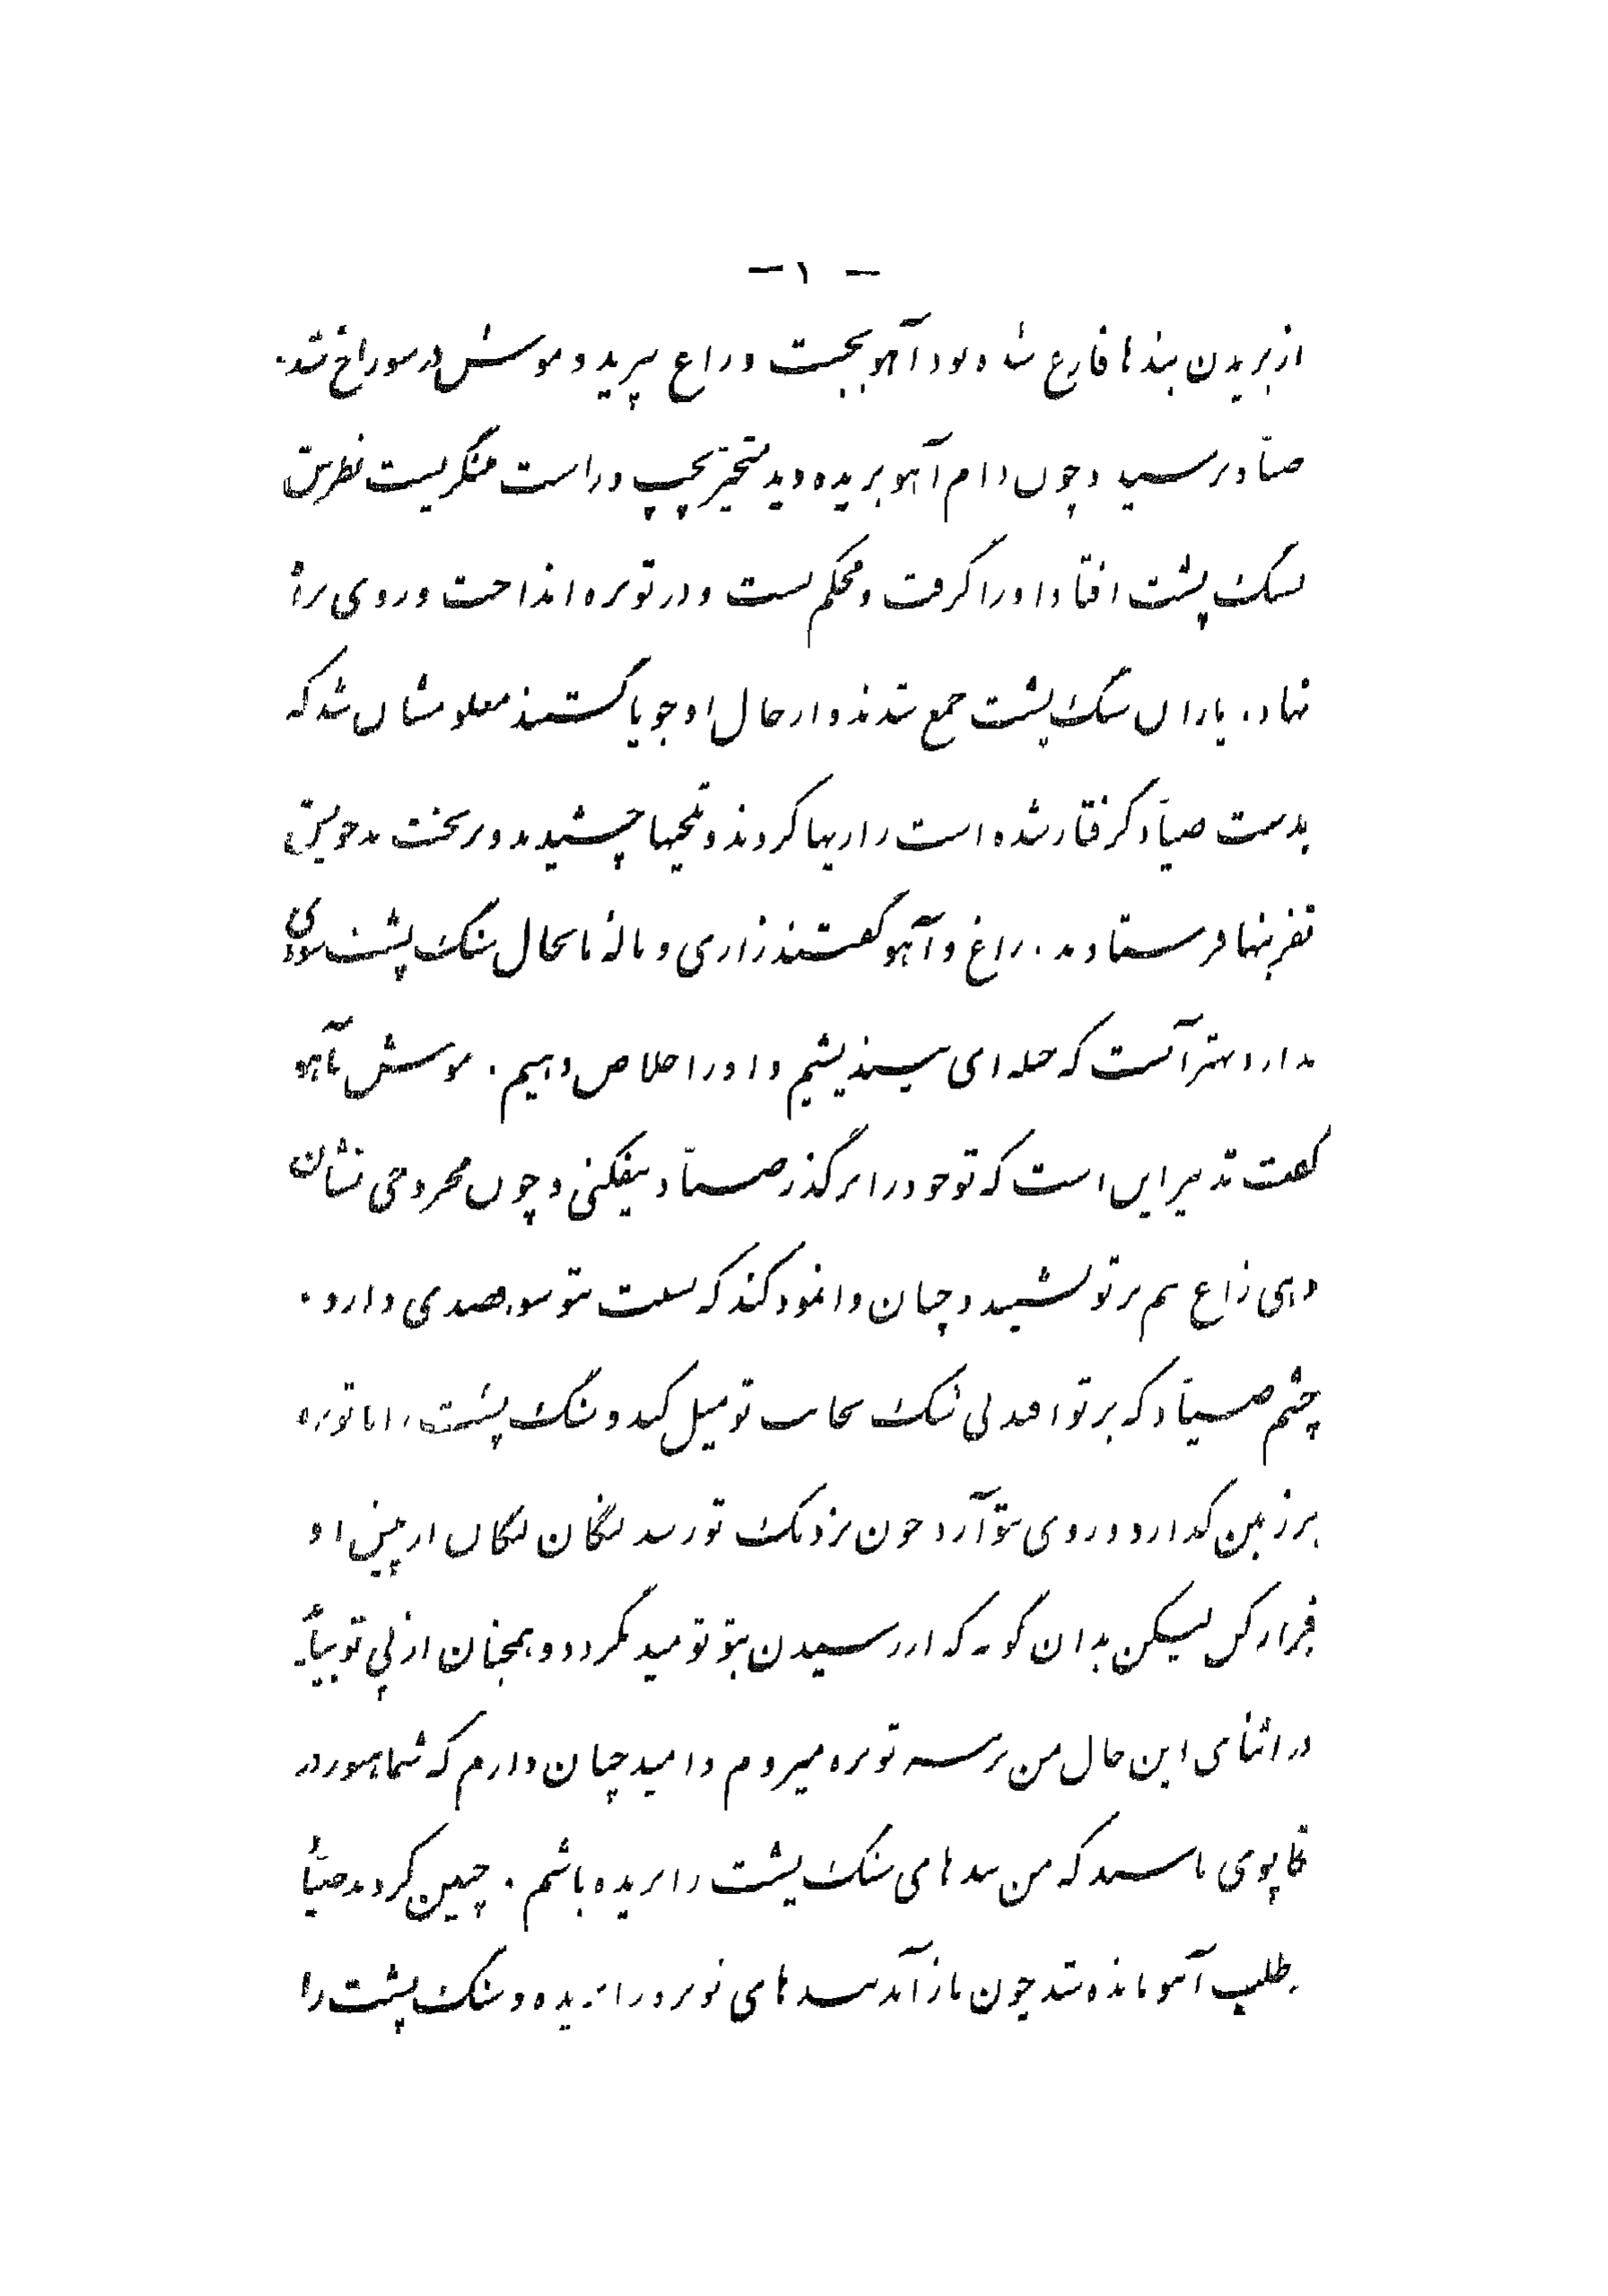 — ۱ —
از بریدن بندها فارغ شده بود آهو بجست و زاغ بپرید و موش در سوراخ شد.
صیّاد برسید و چون دام آهو بریده دید متحیّر بچپ و راست نگریست نظرش
بسنگ پشت افتاد او را گرفت و محکم بست و در توبره انداخت و روی براه
نهاد. یاران سنگ پشت جمع شدند و از حال او جویا گشتند معلومشان شد که
بدست صیّاد گرفتار شده است زاریها کردند و تلخیها چشیدند و بر بخت بد خویش
نفرینها فرستادند. زاغ و آهو گفتند زاری و نالهٔ ما بحال سنگ پشت سودی
ندارد بهتر آنست که حیله ای بیندیشیم و او را خلاص دهیم. موش بآهو
گفت تدبیر این است که تو خود را بر گذر صیّاد بیفکنی و چون مجروحی نشان
دهی زاغ هم بر تو نشیند و چنان وانمود کند که نسبت بتو سوء قصدی دارد.
چشم صیّاد که بر تو افتد بی شک بجانب تو میل کند و سنگ پشت را با توبره
بر زمین گذارد و روی بتو آرد چون نزدیک تو رسد لنگان لنگان از پیش او
فرار کن لیکن بدان گونه که از رسیدن بتو نومید نگردد و همچنان از پی تو بیاید
در اثنای این حال من بر سر توبره میروم و امید چنان دارم که شما هنوز در
تکاپوی باشید که من بندهای سنگ پشت را بریده باشم. چنین کردند صیّاد
بطلب آهو مانده شد چون باز آمد بندهای توبره را بریده و سنگ پشت را